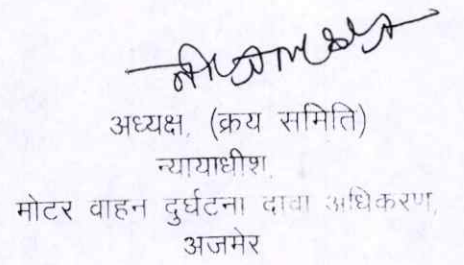 अध्यक्ष, (क्रय समिति)
न्यायाधीश,
मोटर वाहन दुर्घटना दावा अधिकरण,
अजमेर